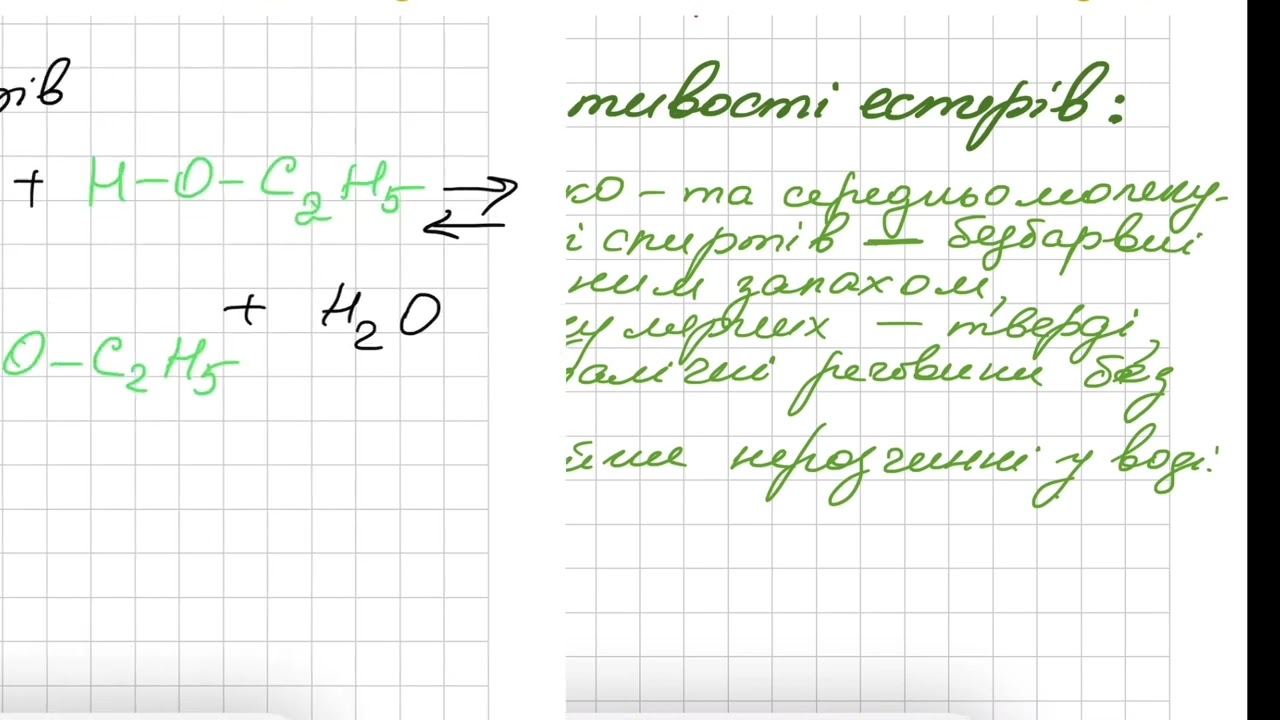 рів
+ H-O-C₂H₅ ⇄
+ H₂O
O-C₂H₅
тивості естерів:
ко - та середньомолеку-
і спиртів — безбарвні
ним запахом,
мерних — тверді,
талічні речовини без
нерозчинні у воді.